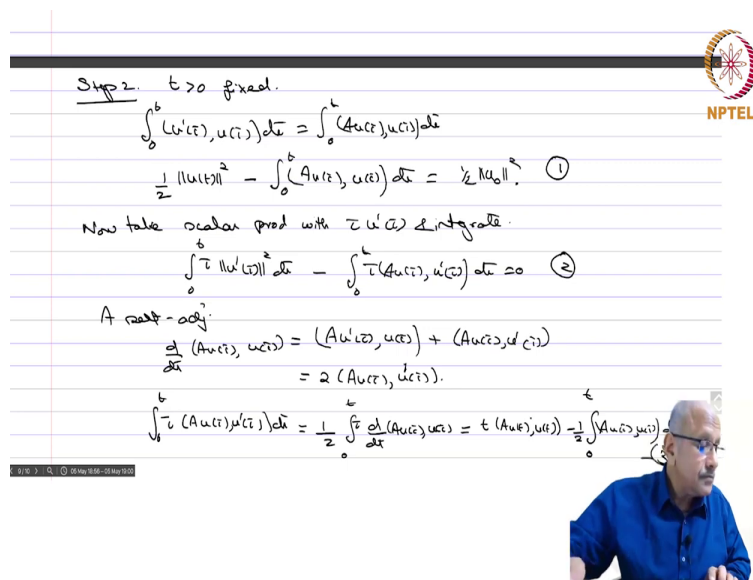 Step 2. t>0 fixed.
∫₀ᵗ (u'(τ), u(τ)) dτ = ∫₀ᵗ (Au(τ), u(τ)) dτ
½ ‖u(t)‖² − ∫₀ᵗ (Au(τ), u(τ)) dτ = ½ ‖u₀‖². ①
Now take scalar prod with τ u'(τ) & integrate.
∫₀ᵗ τ ‖u'(τ)‖² dτ − ∫₀ᵗ τ (Au(τ), u'(τ)) dτ = 0 ②
A self-adj.
d/dτ (Au(τ), u(τ)) = (Au'(τ), u(τ)) + (Au(τ), u'(τ))
= 2 (Au(τ), u'(τ)).
∫₀ᵗ τ (Au(τ), u'(τ)) dτ = 1/2 ∫₀ᵗ τ d/dτ (Au(τ), u(τ)) = t (Au(t), u(t)) − 1/2 ∫₀ᵗ (Au(τ), u(τ))
NPTEL
9/10
05 May 18:56 - 05 May 19:00